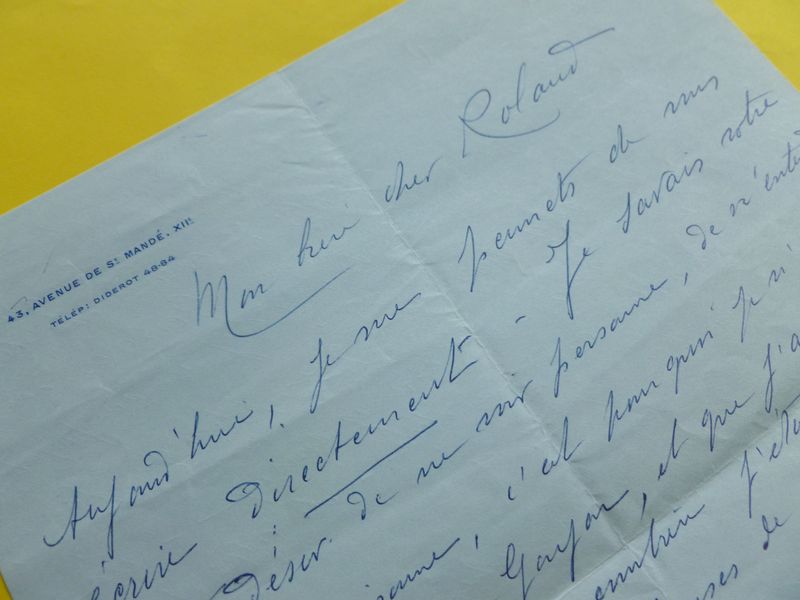 43, AVENUE DE ST MANDÉ, XIIE
TÉLÉP: DIDEROT 48-84
Mon cher Roland
Aujourd'hui, je me permets de vous
écrire directement - Je savais votre
désir de ne voir personne, de n'
c'est pourquoi je
et que j'a
combien j'
de